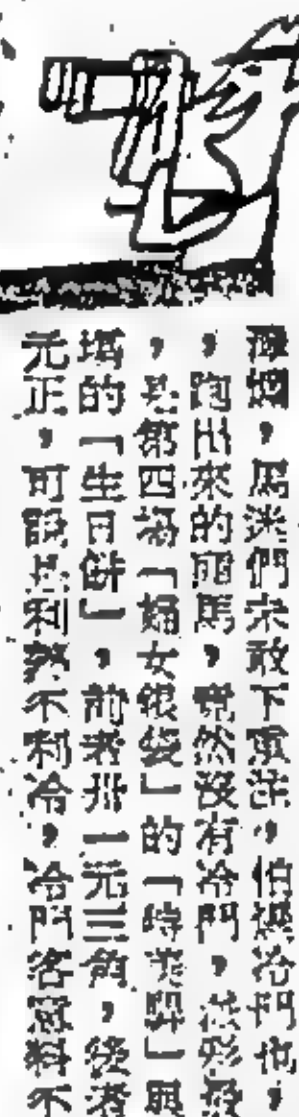 爛馬，馬迷們未敢下重注，怕爆冷門也，
，跑出來的頭馬，竟然沒有冷門，派彩最
，是第四場「婦女銀袋」的「時美」與
場的「生日餅」，前者卅一元三角，後者
元正，可說是利熱不利冷，冷門客意料不